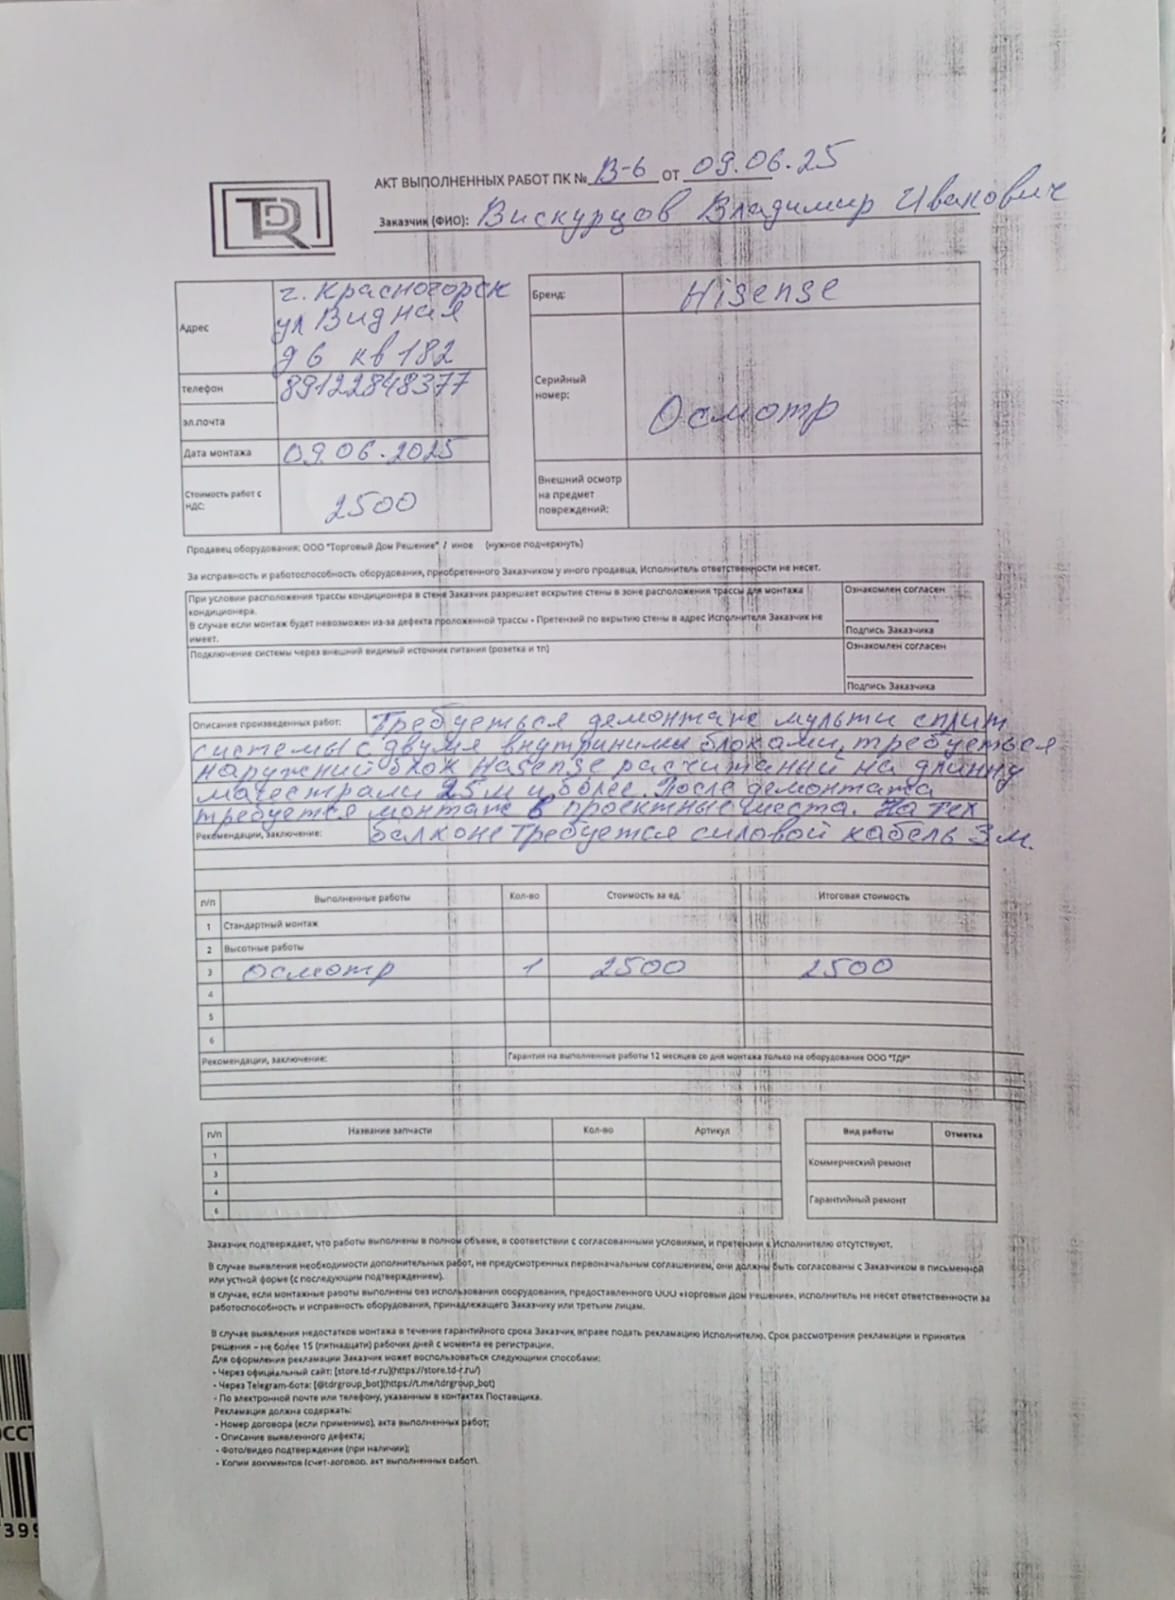 TDR
АКТ ВЫПОЛНЕННЫХ РАБОТ ПК № В-6 от 09.06.25
Заказчик (ФИО): Вискурцов Владимир Иванович
Адрес
г. Красногорск
ул Видная
д 6 кв 182
телефон 89122848377
эл.почта
Дата монтажа 09.06.2025
Стоимость работ с НДС: 2500
Бренд: Hisense
Серийный номер: Осмотр
Внешний осмотр на предмет повреждений:
Продавец оборудования: ООО "Торговый Дом Решение" / иное (нужное подчеркнуть)
За исправность и работоспособность оборудования, приобретенного Заказчиком у иного продавца, Исполнитель ответственности не несет.
При условии расположения трассы кондиционера в стене Заказчик разрешает вскрытие стены в зоне расположения трассы для монтажа
кондиционера.
В случае если монтаж будет невозможен из-за дефекта проложенной трассы - Претензий по вкрытию стены в адрес Исполнителя Заказчик не
имеет.
Ознакомлен согласен
Подпись Заказчика
Подключение системы через внешний видимый источник питания (розетка и тп)
Ознакомлен согласен
Подпись Заказчика
Описание произведенных работ: Требуеться демонтаж мульти сплит
системы с двумя внутриними блоками, требуеться
наружний блок Hasense расчитанний на длинну
магестрали 25 м и более. После демонтажа
требуется монтаж в проектные места. На тех
Рекомендации, заключение: балконе требуется силовой кабель 3 м.
п/п Выполненные работы Кол-во Стоимость за ед. Итоговая стоимость
1 Стандартный монтаж
2 Высотные работы
3 Осмотр 1 2500 2500
4
5
6
Рекомендации, заключение: Гарантия на выполненные работы 12 месяцев со дня монтажа только на оборудование ООО "ТДР"
п/п Название запчасти Кол-во Артикул
1
3
4
6
Вид работы Отметка
Коммерческий ремонт
Гарантийный ремонт
Заказчик подтверждает, что работы выполнены в полном объеме, в соответствии с согласованными условиями, и претензии к Исполнителю отсутствуют.
В случае выявления необходимости дополнительных работ, не предусмотренных первоначальным соглашением, они должны быть согласованы с Заказчиком в письменной
или устной форме (с последующим подтверждением).
В случае, если монтажные работы выполнены без использования оборудования, предоставленного ООО «Торговый дом Решение», Исполнитель не несет ответственности за
работоспособность и исправность оборудования, принадлежащего Заказчику или третьим лицам.
В случае выявления недостатков монтажа в течение гарантийного срока Заказчик вправе подать рекламацию Исполнителю. Срок рассмотрения рекламации и принятия
решения – не более 15 (пятнадцати) рабочих дней с момента ее регистрации.
Для оформления рекламации Заказчик может воспользоваться следующими способами:
• Через официальный сайт: [store.td-r.ru](https://store.td-r.ru/)
• Через Telegram-бота: [@tdrgroup_bot](https://t.me/tdrgroup_bot)
• По электронной почте или телефону, указанным в контактах Поставщика.
Рекламация должна содержать:
• Номер договора (если применимо), акта выполненных работ;
• Описание выявленного дефекта;
• Фото/видео подтверждение (при наличии);
• Копии документов (счет-договор, акт выполненных работ).
399